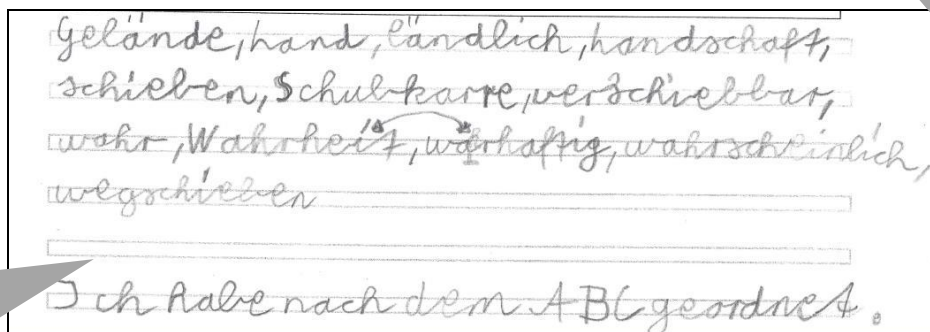 Gelände, Land, ländlich, Landschaft,
schieben, Schubkarre, verschiebbar,
wahr, Wahrheit, warhaftig, wahrscheinlich,
wegschieben
Ich habe nach dem ABC geordnet.